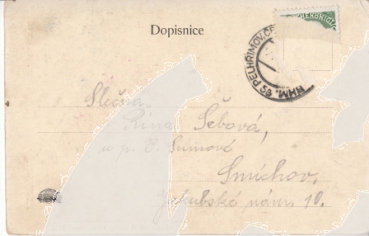 Dopisnice
PELHŘIMOV
Slečna
Rina Šebová,
u p. Sumové
Smíchov.
Jakubské nám 10.